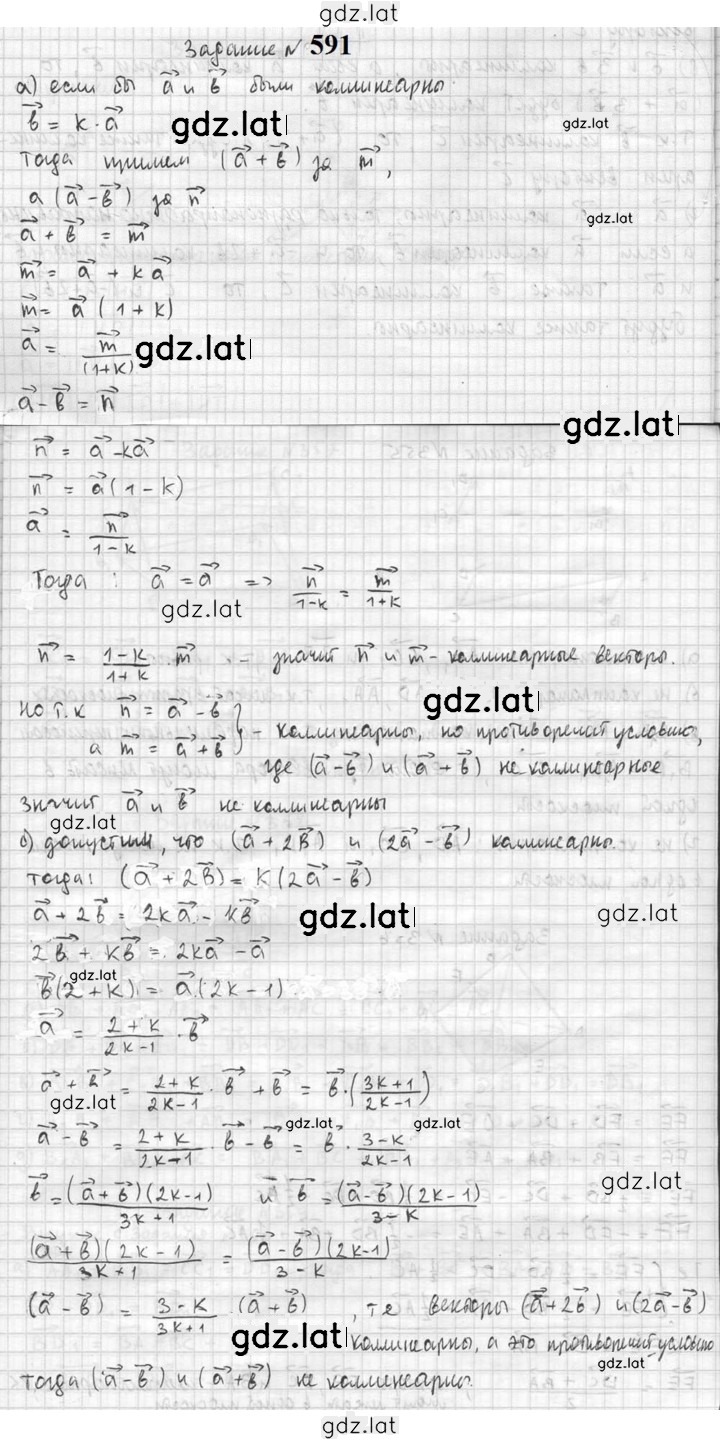 gdz.lat
Задание № 591
а) если бы a⃗ и b⃗ были коллинеарно
b⃗ = k · a⃗ gdz.lat gdz.lat
Тогда примем (a⃗ + b⃗) за m⃗,
а (a⃗ - b⃗) за n⃗
gdz.lat
a⃗ + b⃗ = m⃗
m⃗ = a⃗ + ka⃗
m⃗ = a⃗ (1 + k)
a⃗ = m⃗/(1+k) gdz.lat
a⃗ - b⃗ = n⃗
gdz.lat
n⃗ = a⃗ - ka⃗
n⃗ = a⃗ (1 - k)
a⃗ = n⃗/(1-k)
Тогда : a⃗ = a⃗ => n⃗/(1-k) = m⃗/(1+k)
gdz.lat
n⃗ = (1-k)/(1+k) · m⃗ - значит n⃗ и m⃗ - коллинеарные векторы.
gdz.lat
Но т.к n⃗ = a⃗ - b⃗ } - коллинеарны, но противоречит условию,
а m⃗ = a⃗ + b⃗ где (a⃗ - b⃗) и (a⃗ + b⃗) не коллинеарное
значит a⃗ и b⃗ не коллинеарны
gdz.lat
б) допустим, что (a⃗ + 2b⃗) и (2a⃗ - b⃗) коллинеарны
тогда: (a⃗ + 2b⃗) = k (2a⃗ - b⃗)
a⃗ + 2b⃗ = 2ka⃗ - kb⃗ gdz.lat gdz.lat
2b⃗ + kb⃗ = 2ka⃗ - a⃗
gdz.lat
b⃗ (2 + k) = a⃗ (2k - 1)
a⃗ = (2+k)/(2k-1) · b⃗
a⃗ + b⃗ = (2+k)/(2k-1) · b⃗ + b⃗ = b⃗ · ((3k+1)/(2k-1))
gdz.lat gdz.lat gdz.lat
a⃗ - b⃗ = (2+k)/(2k-1) · b⃗ - b⃗ = b⃗ · (3-k)/(2k-1)
gdz.lat
b⃗ = (a⃗ + b⃗)(2k-1)/(3k+1) и b⃗ = (a⃗ - b⃗)(2k-1)/(3-k)
(a⃗ + b⃗)(2k-1)/(3k+1) = (a⃗ - b⃗)(2k-1)/(3-k)
(a⃗ - b⃗) = (3-k)/(3k+1) · (a⃗ + b⃗) , т.е векторы (a⃗ + 2b⃗) и (2a⃗ - b⃗)
gdz.lat коллинеарны, а это противоречит условию
gdz.lat
тогда (a⃗ - b⃗) и (a⃗ + b⃗) не коллинеарны.
gdz.lat